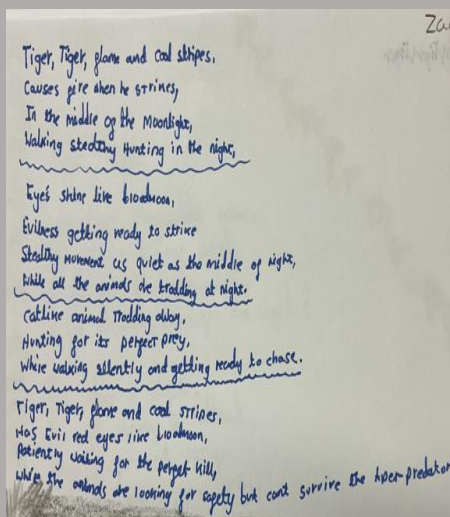 Za
Tiger, Tiger, flame and coal stripes,
Causes fire when he strikes,
In the middle of the Moonlight,
Walking stealthy Hunting in the night,
Eye's shine like bloodmoon,
Evilness getting ready to strike
Stealthy movement as quiet as the middle of night,
While all the animals are tradding at night.
Catlike animal Tradding away,
Hunting for its perfect prey,
While walking silently and getting ready to chase.
Tiger, Tiger, flame and coal stripes,
Has Evil red eyes like bloodmoon,
Patiently waiting for the perfet kill,
While the animals are looking for safety but cant survive the Aper-predator